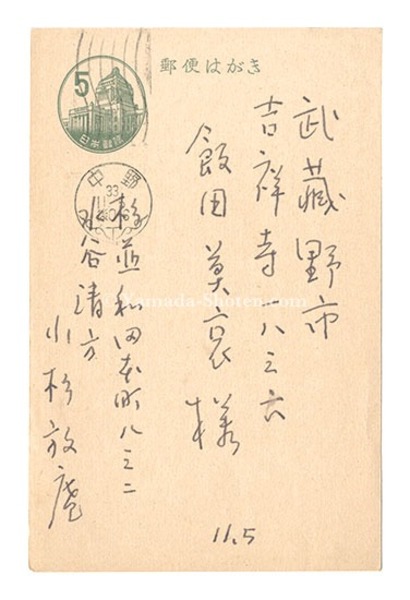 郵便はがき
5
日本郵便
中野
33
武藏野市
吉祥寺八三六
飯田莫哀様
杉並和田本町八三二
水谷清方
小杉放庵
11.5
Yamada-Shoten.com